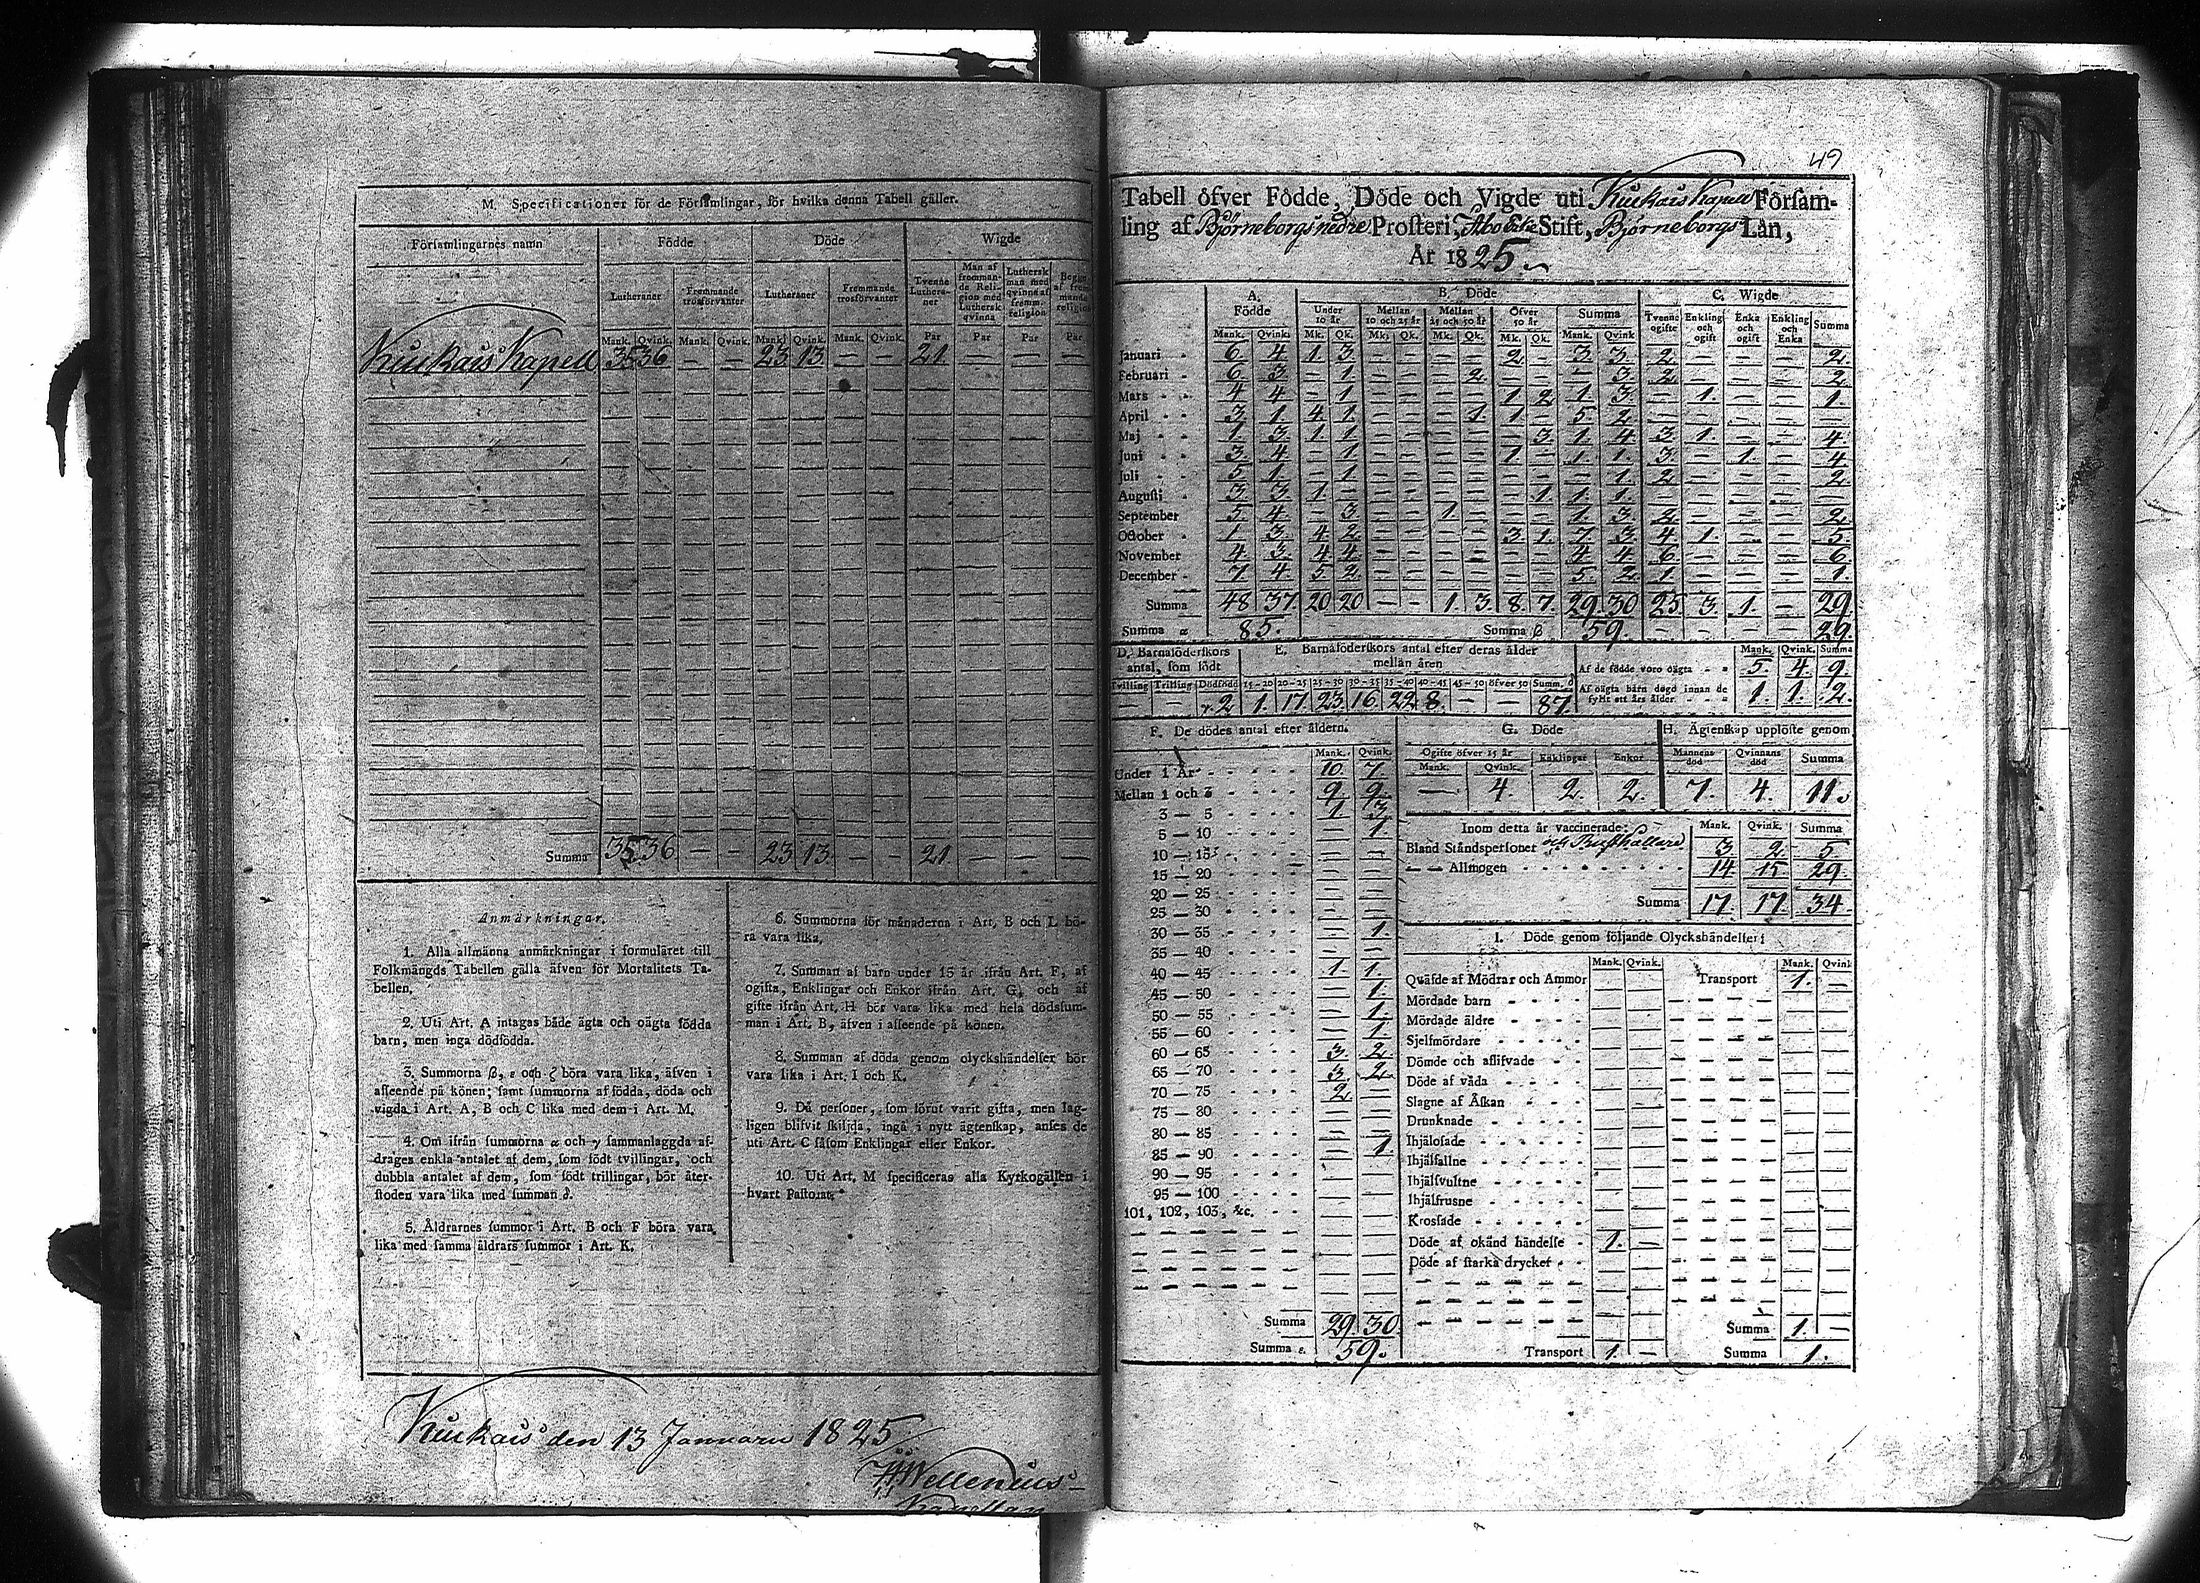 M. Specificationer för de Församlingar, för hvilka denna Tabell gäller.
Församlingarnes namn Födde Döde Wigde
Lutheraner Fremmande trosförvanter Lutheraner Fremmande trosförvanter Tvenne Lutheraner Man af fremmande Religion med Luthersk qvinna Luthersk man med qvinna af fremm. religion Begge af fremmande religion
Mank. Qvink. Mank. Qvink. Mank. Qvink. Mank. Qvink. Par Par Par Par
Kiukais Kapell 35 36 — — 23 13 — — 21 — — —
Summa 35 36 — — 23 13 — — 21 — — —
Anmärkningar.
1. Alla allmänna anmärkningar i formuläret till
Folkmängds Tabellen gälla äfven för Mortalitets Ta-
bellen.
2. Uti Art. A intagas både ägta och oägta födda
barn, men inga dödfödda.
3. Summorna ß, ε och ζ böra vara lika, äfven i
afseende på könen; samt summorna af födda, döda och
vigda i Art. A, B och C lika med dem i Art. M.
4. Om ifrån summorna α och γ sammanlaggda af-
drages enkla antalet af dem, som födt tvillingar, och
dubbla antalet af dem, som födt trillingar, bör åter-
stoden vara lika med summan δ.
5. Åldrarnes summor i Art. B och F böra vara
lika med samma åldrars summor i Art. K.
6. Summorna för månaderna i Art. B och L bö-
ra vara lika.
7. Summan af barn under 15 år ifrån Art. F, af
ogifta, Enklingar och Enkor ifrån Art. G, och af
gifte ifrån Art. H bör vara lika med hela dödssum-
man i Art. B, äfven i afseende på könen.
8. Summan af döda genom olyckshändelser bör
vara lika i Art. I och K.
9. Då personer, som förut varit gifta, men lag-
ligen blifvit skiljda, ingå i nytt ägtenskap, anses de
uti Art. C såsom Enklingar eller Enkor.
10. Uti Art. M specificeras alla Kyrkogällen i
hvart Pastorat.
Kiukais den 13 Januarii 1825
Wellenius
Kapellan
49
Tabell öfver Födde, Döde och Vigde uti Kiukais Kapell Försam-
ling af Björneborgs nedre Prosteri, Åbo Erke Stift, Björneborgs Län,
År 1825.
A. Födde B. Döde C. Wigde
Under 10 år Mellan 10 och 25 år Mellan 25 och 50 år Öfver 50 år Summa Tvenne ogifte Enkling och ogift Enka och ogift Enkling och Enka Summa
Mank. Qvink. Mk. Qk. Mk. Qk. Mk. Qk. Mk. Qk. Mank. Qvink
Januari 6. 4. 1. 3. — — — — 2. — 3. 3. 2. — — — 2.
Februari 6. 3. — 1. — — — 2. — — — 3. 2. — — — 2.
Mars 4. 4. — 1. — — — — 1. 2. 1. 3. — 1. — — 1.
April 3. 1. 4. 1. — — — 1. 1. — 5. 2. — — — — —
Maj 1. 3. 1. 1. — — — — — 3. 1. 4. 3. 1. — — 4.
Juni 3. 4. — 1. — — — — 1. — 1. 1. 3. — 1. — 4.
Juli 5. 1. — 1. — — — — — — — 1. 2. — — — 2.
Augusti 3. 3. 1. — — — — — — 1. 1. 1. — — — — —
September 5. 4. — 3. — — 1. — — — 1. 3. 2. — — — 2.
October 1. 3. 4. 2. — — — — 3. 1. 7. 3. 4. 1. — — 5.
November 4. 3. 4. 4. — — — — — — 4. 4. 6. — — — 6.
December 7. 4. 5. 2. — — — — — — 5. 2. 1. — — — 1.
Summa 48 37. 20 20 — — 1. 3. 8. 7. 29. 30 25 3. 1. — 29.
Summa α 85. Summa ß 59. — — — — 29.
D. Barnaföderskors antal, som födt E. Barnaföderskors antal efter deras ålder mellan åren Mank. Qvink. Summa
Tvilling Trilling Dödfödd 15-20 20-25 25-30 30-35 35-40 40-45 45-50 öfver 50 Summ. δ
— — γ. 2 1. 17. 23. 16. 22. 8. — — 87.
Af de födde voro oägta 5 4. 9.
Af oägta barn dogo innan de fyllt ett års ålder 1. 1. 2.
F. De dödes antal efter åldern.
Mank. Qvink.
Under 1 År 10. 7.
Mellan 1 och 3 9. 9.
3 — 5 1. 3.
5 — 10 — 1.
10 — 15 — —
15 — 20 — —
20 — 25 — —
25 — 30 — —
30 — 35 — 1.
35 — 40 — —
40 — 45 1. 1.
45 — 50 — 1.
50 — 55 — 1.
55 — 60 — 1.
60 — 65 3. 2.
65 — 70 3. 2.
70 — 75 2. —
75 — 80 — —
80 — 85 — —
85 — 90 — 1.
90 — 95 — —
95 — 100 — —
101, 102, 103, &c. — —
Summa 29. 30
Summa ε. 59.
G. Döde
Ogifte öfver 15 år Enklingar Enkor
Mank. Qvink.
— 4 2. 2.
H. Ägtenskap upplöste genom
Mannens död Qvinnans död Summa
7. 4. 11.
Inom detta år vaccinerade: Mank. Qvink. Summa
Bland Ståndspersoner och Rusthållare 3 2 5
— — Allmogen 14. 15 29.
Summa 17. 17. 34.
I. Döde genom följande Olyckshändelser:
Mank. Qvink. Mank. Qvink
Qväfde af Mödrar och Ammor — — Transport 1. —
Mördade barn — —
Mördade äldre — —
Sjelfmördare — —
Dömde och aflifvade — —
Döde af våda — —
Slagne af Åskan — —
Drunknade — —
Ihjälosade — —
Ihjälfallne — —
Ihjälsvultne — —
Ihjälfrusne — —
Krossade — —
Döde af okänd händelse 1. —
Döde af starka drycker — —
Summa 1. —
Transport 1. — Summa 1.